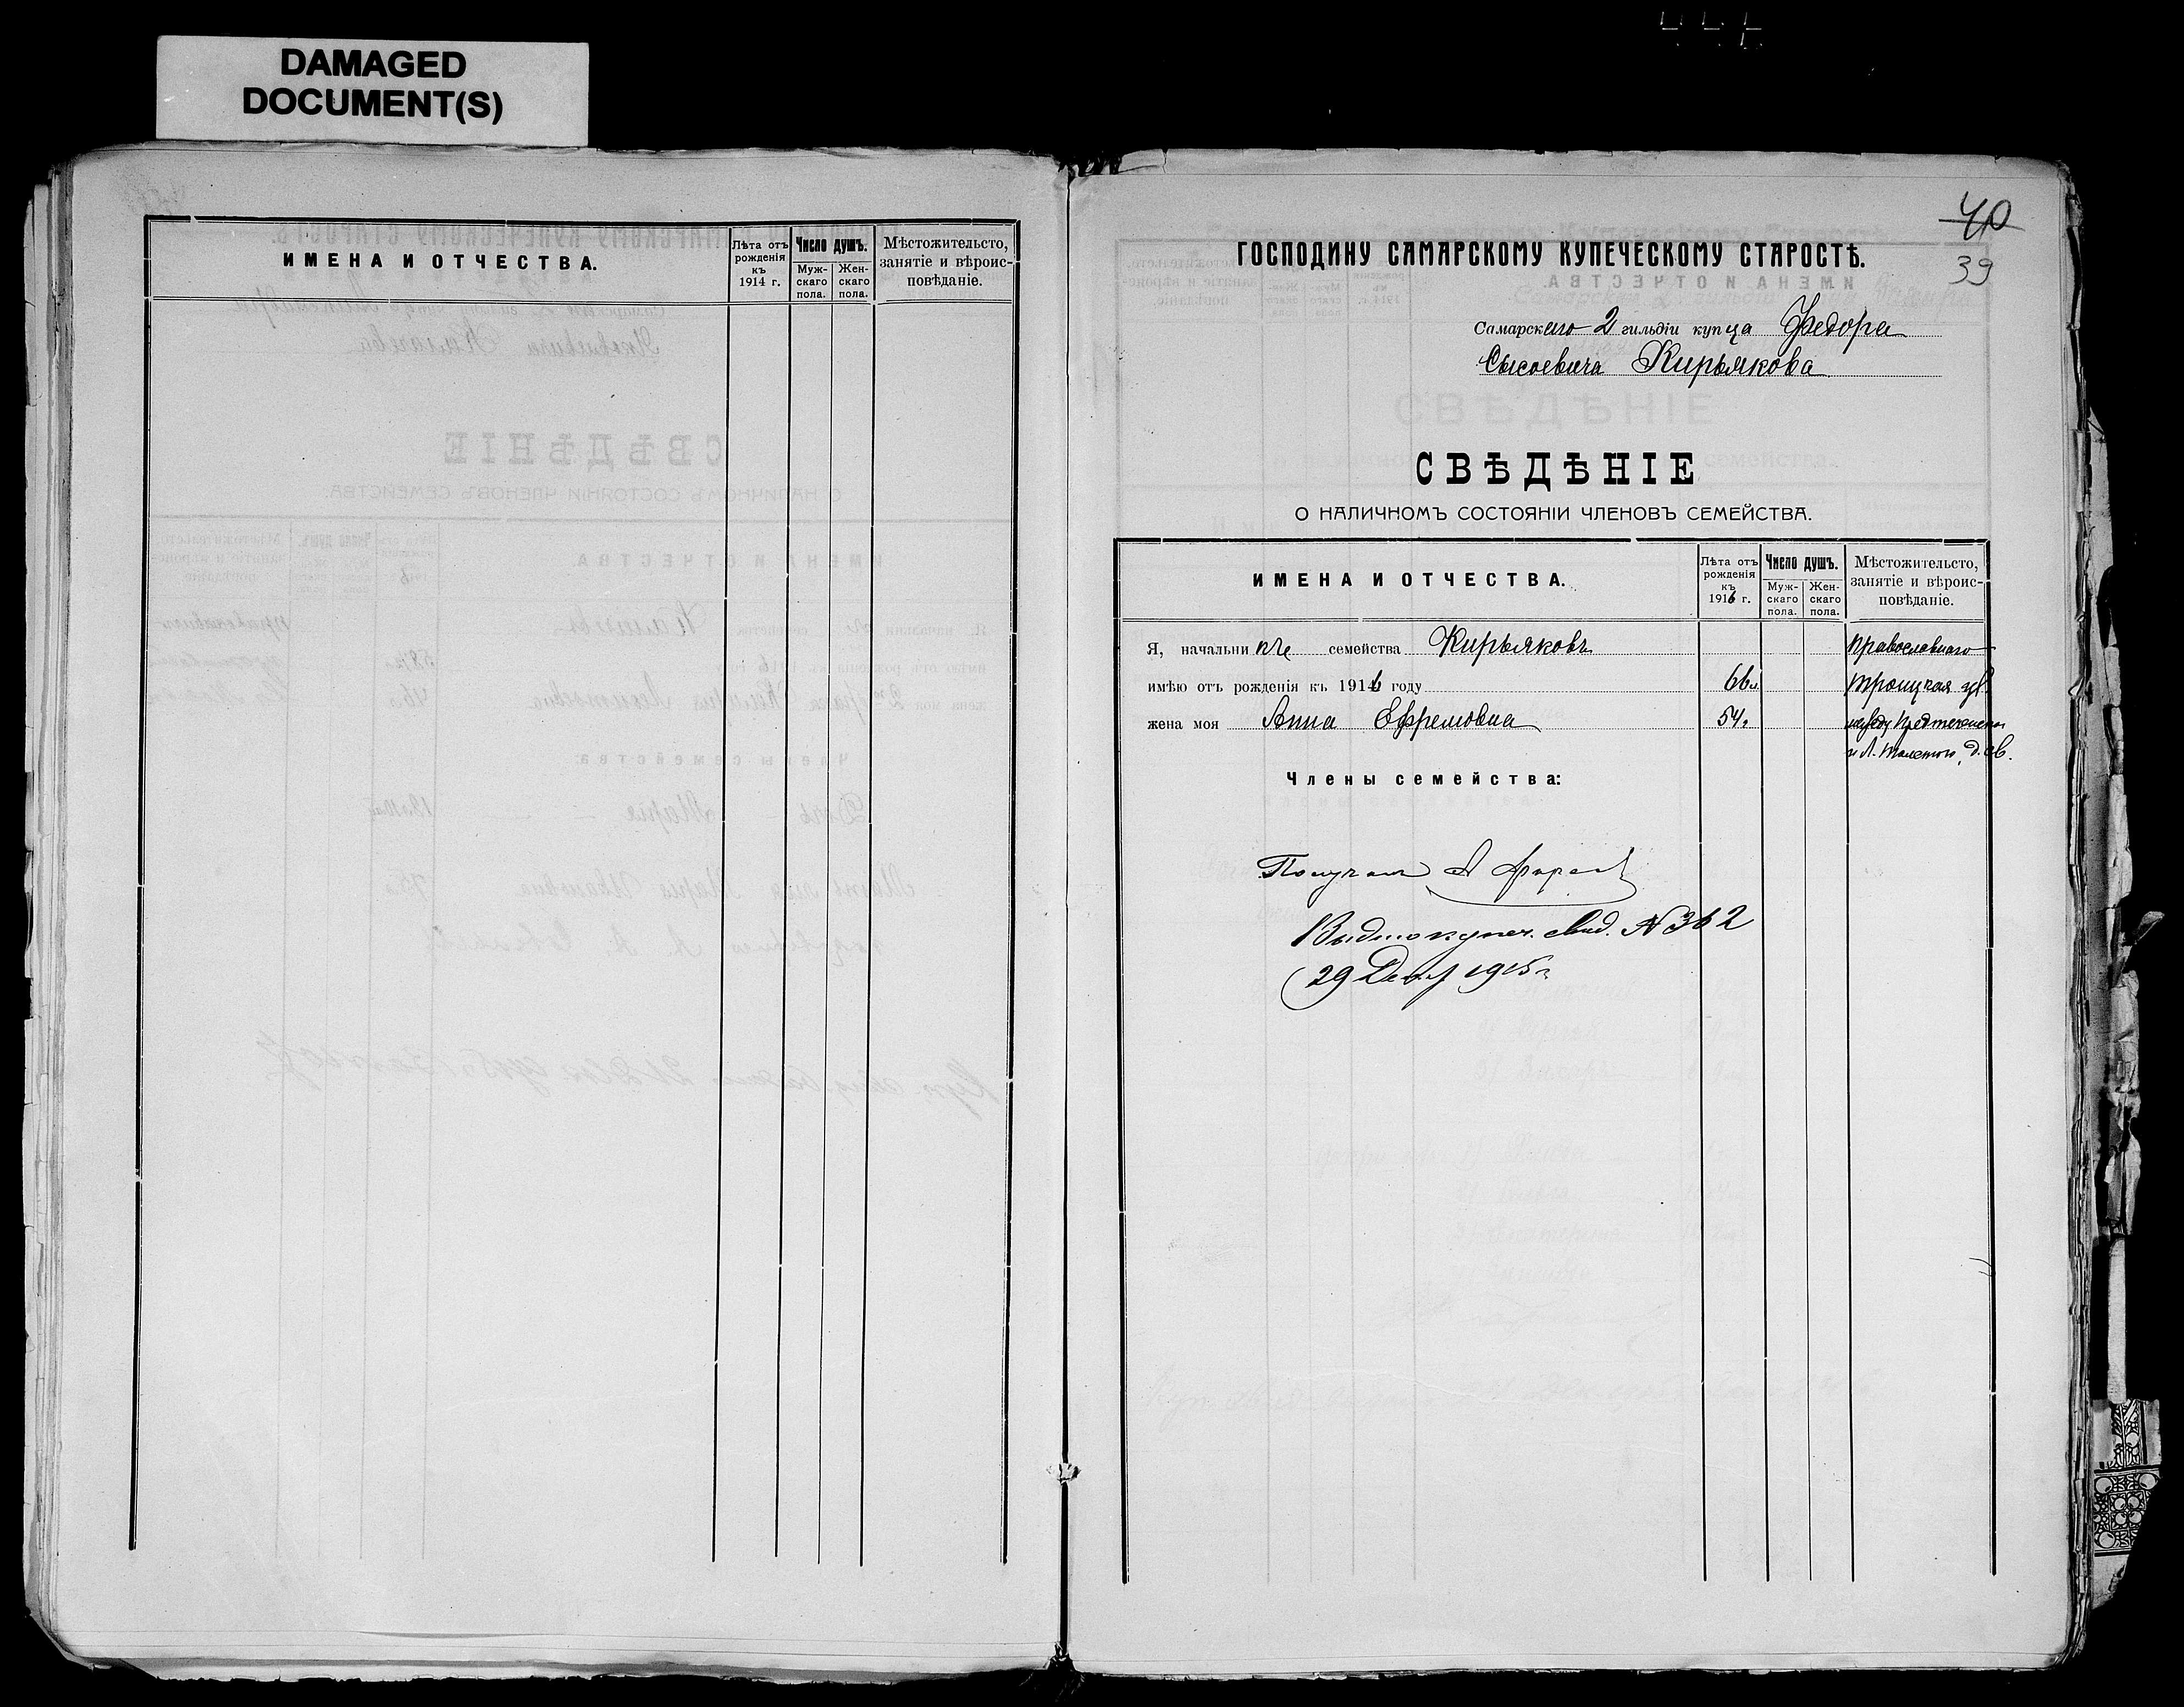 DAMAGED
DOCUMENT(S)
ИМЕНА И ОТЧЕСТВА.
Лѣта отъ рожденія къ 1914 г.
Число душъ.
Муж-скаго пола.
Жен-скаго пола.
Мѣстожительсто, занятіе и вѣроис-повѣданіе.
40
39
ГОСПОДИНУ САМАРСКОМУ КУПЕЧЕСКОМУ СТАРОСТѢ.
Самарскаго 2 гильдіи купца Федора
Сысоевича Кирьякова
СВѢДѢНІЕ
О НАЛИЧНОМЪ СОСТОЯНІИ ЧЛЕНОВЪ СЕМЕЙСТВА.
ИМЕНА И ОТЧЕСТВА.
Лѣта отъ рожденія къ 1916 г.
Число душъ.
Муж-скаго пола.
Жен-скаго пола.
Мѣстожительсто, занятіе и вѣроис-повѣданіе.
Я, начальникъ семейства Кирьяковъ православнаго
имѣю отъ рожденія къ 1916 году 66 Троицкая ул.
жена моя Анна Ефремовна 54 между Предтеченск
и Л. Толстого, д. св.
Члены семейства:
Получилъ
купеч. свид. № 362
29 Декбр 1915 г